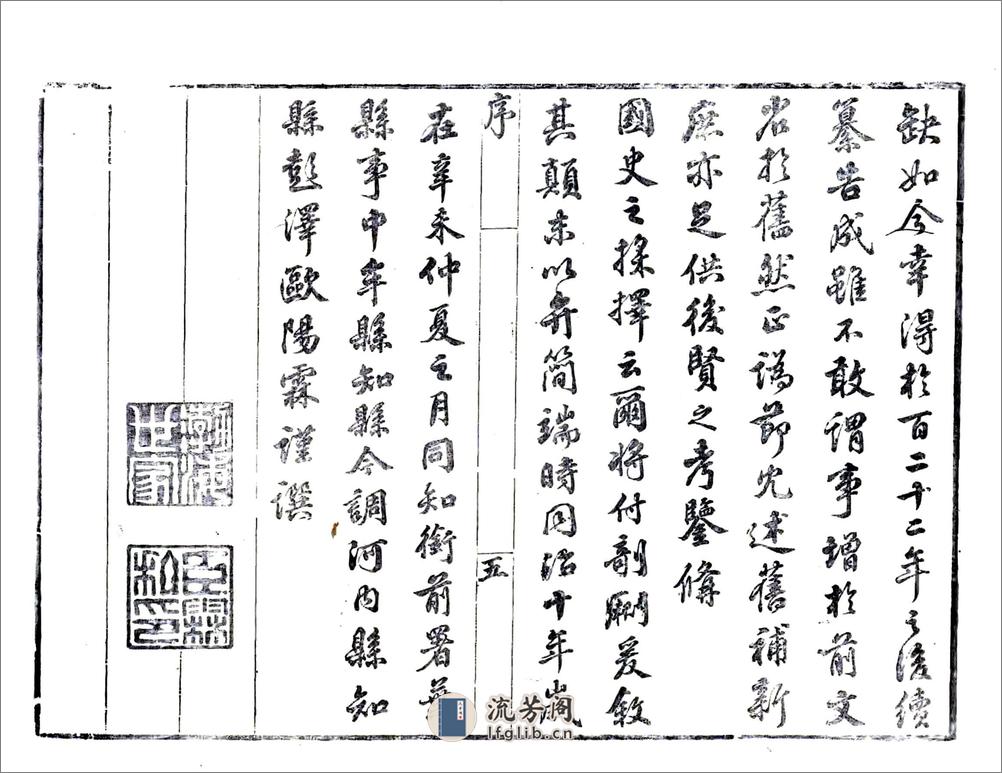 缺如今幸得於百二十二年之後續
纂告成雖不敢謂事增於前文
省於舊然正譌節冗述舊補新
庶亦足供後賢之考鑒備
國史之採擇云爾將付剞劂爰敘
其顛末以弁簡端時同治十年歲
序
五
在辛未仲夏之月同知銜前署葉
縣事中牟縣知縣今調河內縣知
縣彭澤歐陽霖謹撰
流芳阁
lfglib.cn